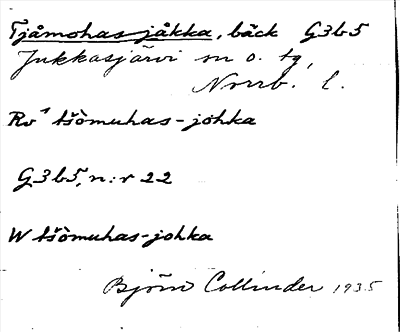 Tjåmohas jåkka, bäck G3b5
Jukkasjärvi sn o. tg,
Norrb. l.
Rv¹ tšòmuhas-johka
G3b5, n:r 22
W tšòmuhas-johka
Björn Collinder 1935